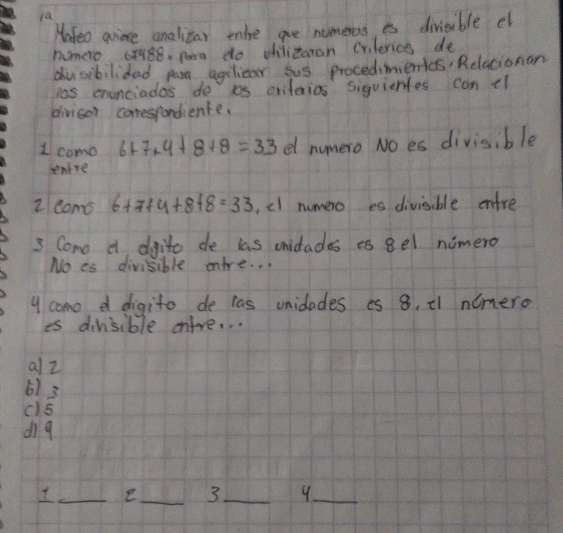 1a
Mateo quiere analizar entre que numeros es divisible el
número 67488. para do utilizaran criterios de
divisibilidad para agilizar sus procedimientos. Relacionan
los enunciados de los criterios siguientes con el
divisor correspondiente.
1 como 6+7+4+8+8=33 el numero NO es divisible
entre
2 Como 6+7+4+8+8=33, el numero es divisible entre
3 Como el dígito de las unidades es 8 el número
No es divisible entre...
4 como el digito de las unidades es 8, el número
es divisible entre...
a) 2
b) 3
c) 5
d) 9
1 ____ 2 ____ 3 ____ 4 ____